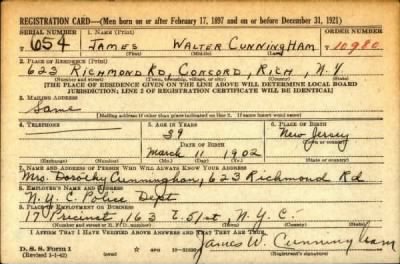 REGISTRATION CARD—(Men born on or after February 17, 1897 and on or before December 31, 1921)
SERIAL NUMBER 1. NAME (Print) ORDER NUMBER
654 JAMES WALTER CUNNINGHAM 10980
(First) (Middle) (Last)
2. PLACE OF RESIDENCE (Print)
623 RICHMOND RD, CONCORD, RICH, N.Y.
(Number and street) (Town, township, village, or city) (County) (State)
[THE PLACE OF RESIDENCE GIVEN ON THE LINE ABOVE WILL DETERMINE LOCAL BOARD
JURISDICTION; LINE 2 OF REGISTRATION CERTIFICATE WILL BE IDENTICAL]
3. MAILING ADDRESS
Same
[Mailing address if other than place indicated on line 2. If same insert word same]
4. TELEPHONE 5. AGE IN YEARS 6. PLACE OF BIRTH
39 New Jersey
DATE OF BIRTH (Town or county)
March 11 1902
(Mo.) (Day) (Yr.) (State or country)
7. NAME AND ADDRESS OF PERSON WHO WILL ALWAYS KNOW YOUR ADDRESS
Mrs. Dorothy Cunningham, 623 Richmond Rd
8. EMPLOYER'S NAME AND ADDRESS
N.Y.C. Police Dept
9. PLACE OF EMPLOYMENT OR BUSINESS
17 Precinct, 163 E. 51 st, N.Y.C.
(Number and street or R. F. D. number) (Town) (County) (State)
I AFFIRM THAT I HAVE VERIFIED ABOVE ANSWERS AND THAT THEY ARE TRUE.
D. S. S. Form 1 GPO
(Revised 1-1-42)
James W. Cunningham
(Registrant's signature)